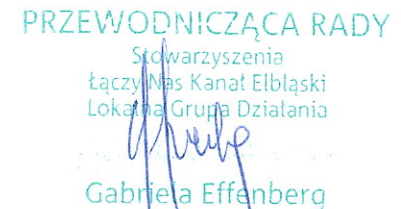 PRZEWODNICZĄCA RADY
Stowarzyszenia
Łączy Nas Kanał Elbląski
Lokalna Grupa Działania
Gabriela Effenberg